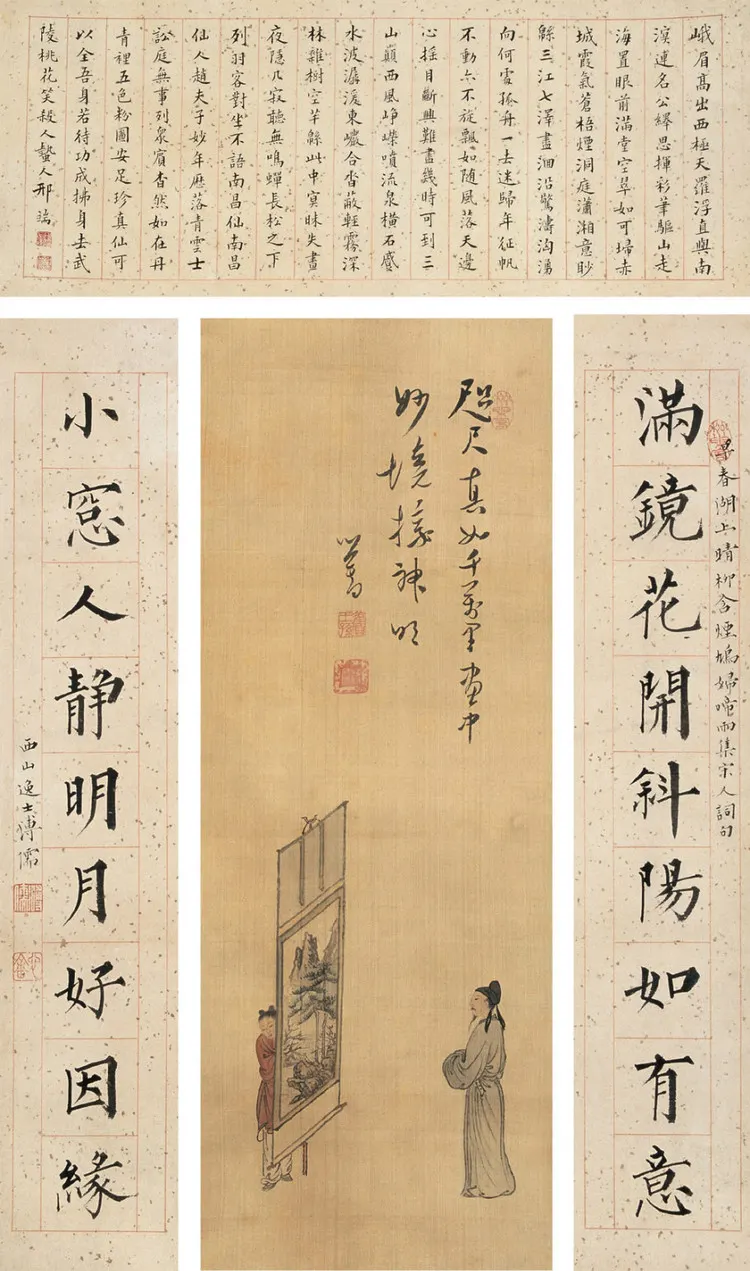 峨眉高出西極天羅浮直與南
溟連名公繹思揮彩筆驅山走
海置眼前滿堂空翠如可掃赤
城霞氣蒼梧煙洞庭瀟湘意眇
緜三江七澤盡洄沿驚濤洶湧
向何處孤舟一去迷歸年征帆
不動亦不旋飄如隨風落天邊
心搖目斷興難盡幾時可到三
山巔西風崢嶸噴流泉橫石蹙
水波潺湲東巖合沓蔽輕霧深
林雜樹空芊緜此中冥昧失晝
夜隱几寂聽無鳴蟬長松之下
列羽客對坐不語南昌仙南昌
仙人趙夫子妙年歷落青雲士
訟庭無事列眾賓杳然如在丹
青裡五色粉圖安足珍真仙可
以全吾身若待功成拂身去武
陵桃花笑殺人蟄人邢端
早春湖上晴柳含煙鳩婦啼雨集宋人詞句
滿鏡花開斜陽如有意
咫尺真如千萬里畫中
妙境接神明
心畬
小窻人靜明月好因緣
西山逸士溥儒